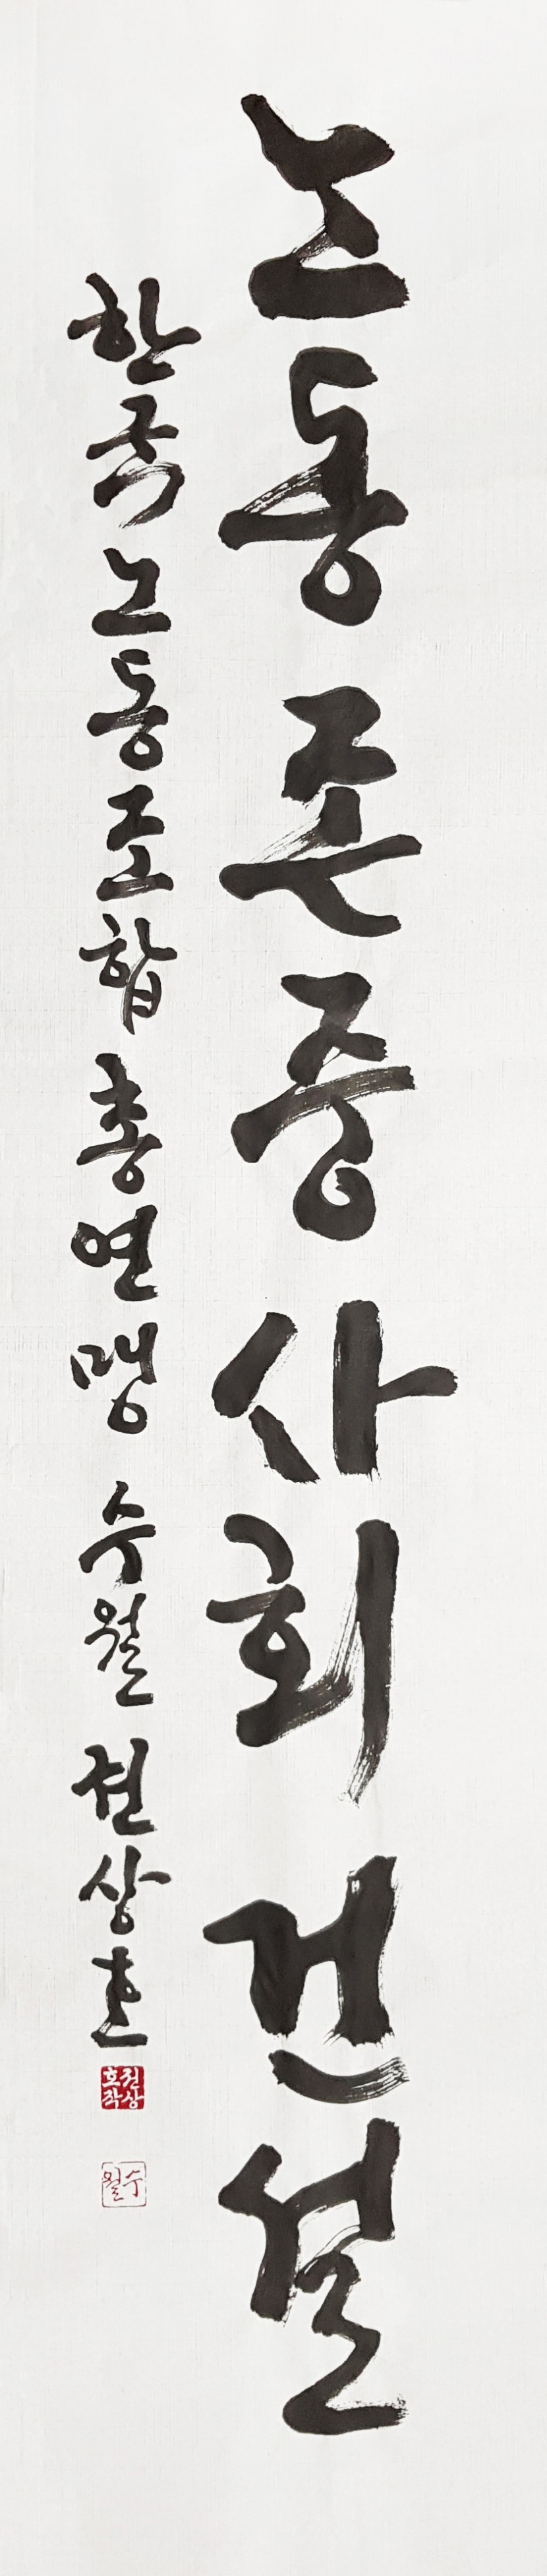 노동존중사회건설
한국노동조합총연맹 수월 권상호
권상호작
수월